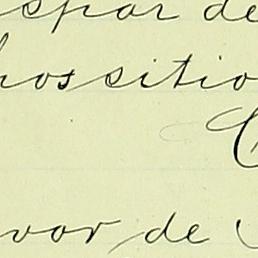 spar de
possitio
C
vor de